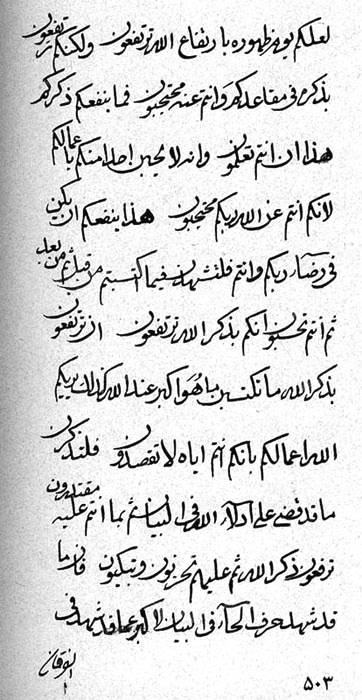 لعلكم يوم ظهوره بارتفاع الله ترتفعون ولكنكم ترتفعون
بذكره في مقاعدكم وانتم عنه محتجبون فما ينفعكم ذكركم
هذا ان انتم تعلمون وانه لا يحبن احدا منكم باعمالكم
لأنكم أنتم عن الله ربكم محتجبون هذا ينفعكم ان يكن
في رضاء ربكم وانتم فلتشهدن فيما اكتسبتم من قبل ثم من بعد
ثم أنتم تحسبون انكم بذكر الله ترتفعون اذ ترتفعون
بذكر الله ما تكتسبن ما هو اكبر عند الله كذلك يريكم
الله اعمالكم بانكم أنتم اياه لا تقصدون فلتذكرن
ما قد قضى على ادلاء الله في البيان ثم بما انتم عليه مقتدرون
ترفعون ذكر الله ثم عليهم تحزنون وتبكون فان ما
قد شهد حرف الحاء في البيان لاكبر عما قد شهد في
الفرقان
٥٠٣